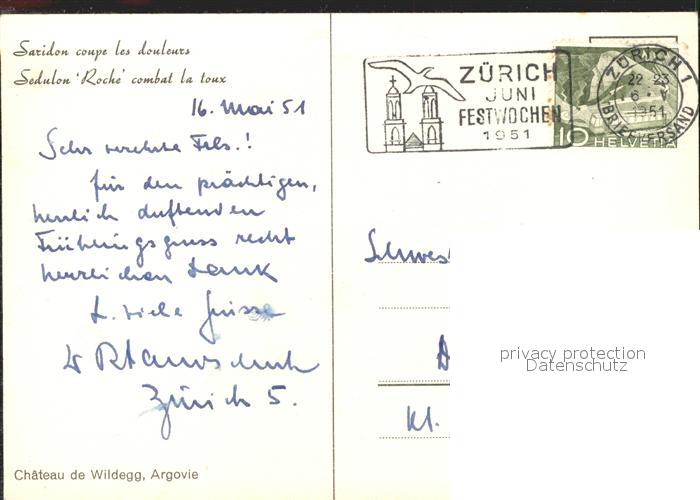 Saridon coupe les douleurs
Sedulon 'Roche' combat la toux
16. Mai 51
Sehr verehrte Frls.!
für den prächtigen,
herrlich duftenden
Frühlingsgruss recht
herzlichen Dank
& viele Grüsse
Zürich 5.
Château de Wildegg, Argovie
ZÜRICH
JUNI
FESTWOCHEN
1951
ZÜRICH 1
22 23
1951
BRIEFVERSAND
10 HELVETIA
Schwes
Kl.
privacy protection
Datenschutz